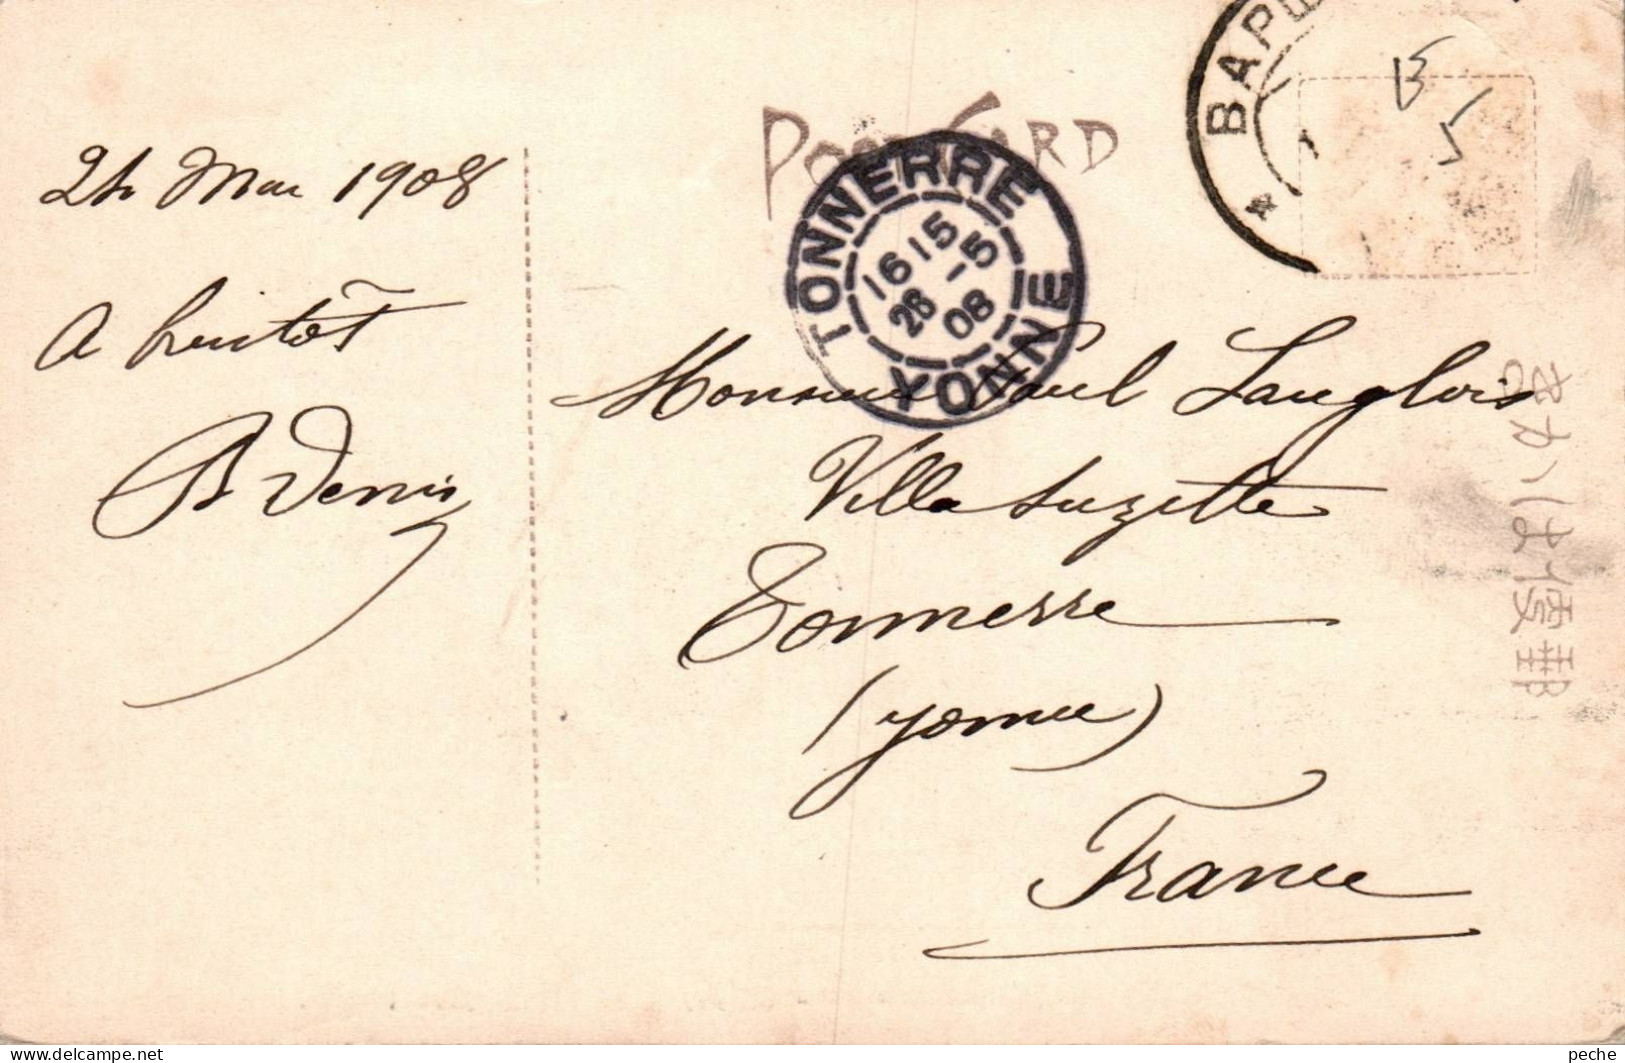 POST CARD
BAPE
B
5
TONNERRE
1615
26-5
08
YONNE
24 Mai 1908
A bientôt
A Denis
Monsieur Paul Langlois
Villa Suzette
Tonnerre
(Yonne)
France
郵便はがき
www.delcampe.net
peche